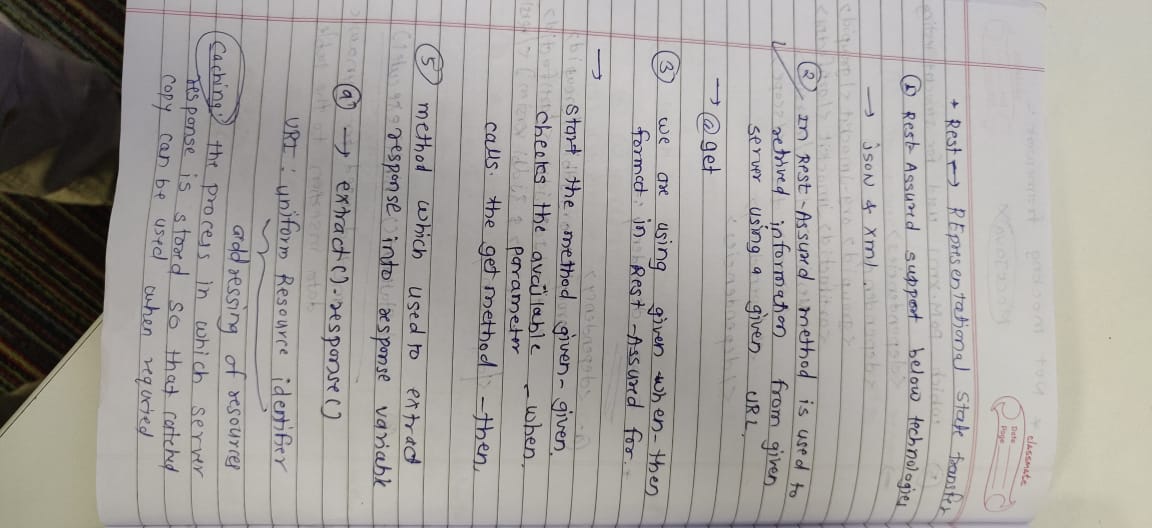 classmate
Date
Page
* Rest → REpresentational State transfer
① Rest Assured support below technologies
→ JSON & xml.
② In Rest-Assured method is used to
retrived information from given
server using a given URL.
→ @get
③ we are using given-when-then
format in Rest-Assured for.
→
start the method given-given.
checks the available - when.
parameter
calls. the get method - then.
⑤ method which used to extract
response into response variable
ⓐ → extract().response()
URI : uniform Resource identifier
addressing of resources
Caching: the proces in which server
response is stored so that catched
copy can be used when requrted